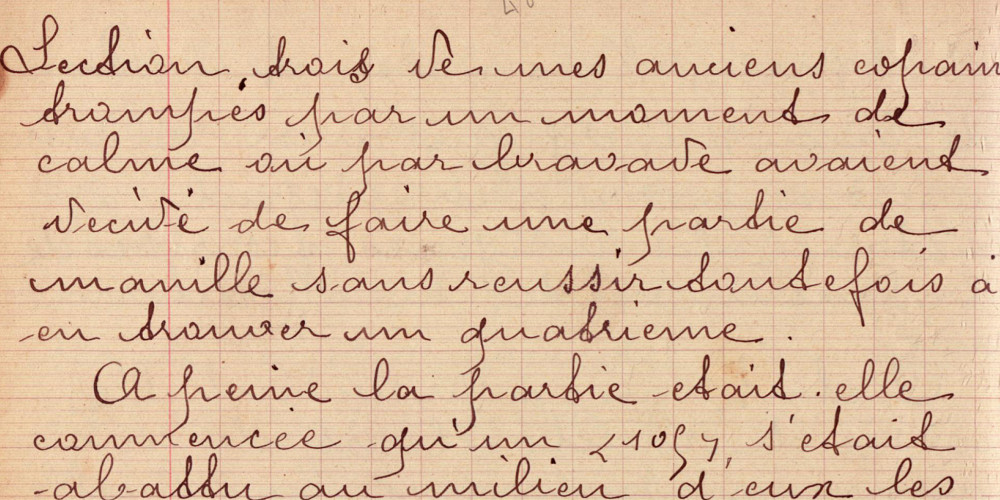 Section, trois de mes anciens copain
trompés par un moment de
calme où par bravade avaient
decidé de faire une partie de
manille sans reussir toutefois à
en trouver un quatrieme.
A peine la partie etait. elle
commencée qu'un <105>, s'etait
abattu au milieu d'eux les